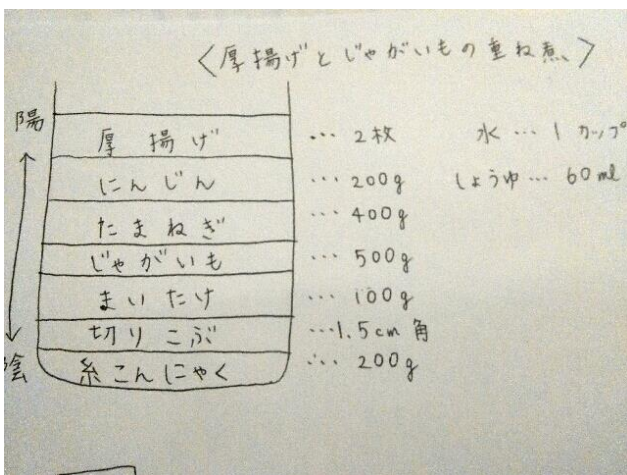 〈厚揚げとじゃがいもの重ね煮〉
陽
厚揚げ … 2枚 水 … 1カップ
にんじん … 200g しょうゆ … 60ml
たまねぎ … 400g
じゃがいも … 500g
まいたけ … 100g
切りこぶ … 1.5cm角
陰
糸こんにゃく … 200g